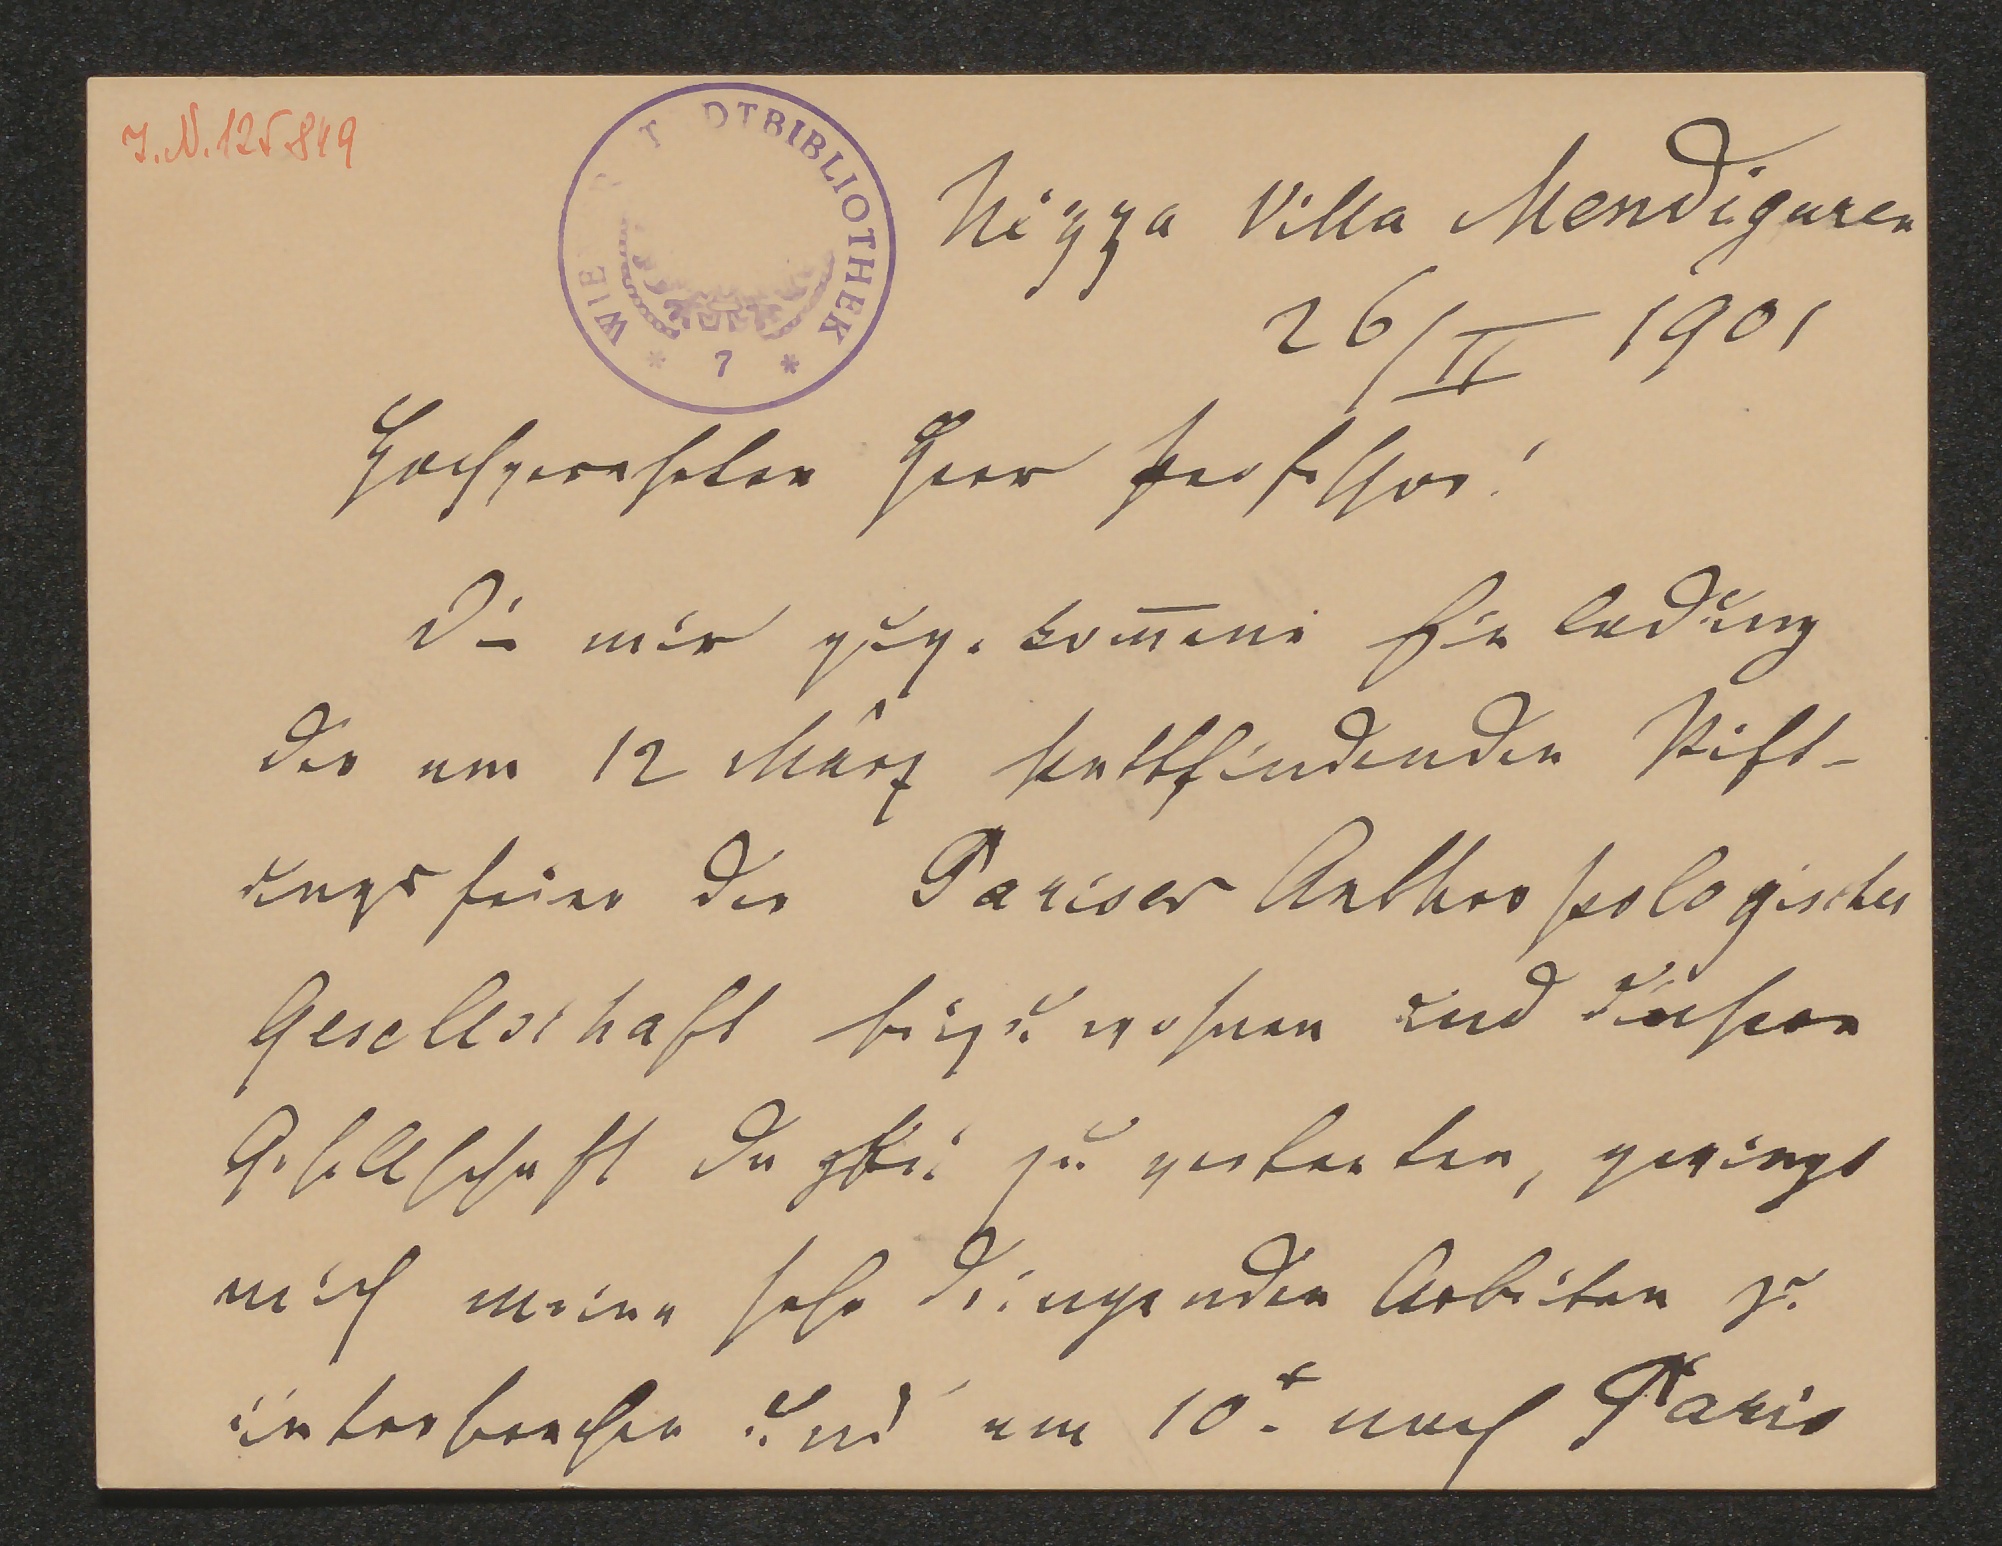 I.N. 125.849
WIE T DTBIBLIOTHEK
* 7 *
Nizza Villa Mendiguren
26/II 1901
Hochverehrter Herr Professor!
Die mir zugekom̅ene Einladung
der am 12 März stattfindenden Stift-
ungsfeier der Pariser Anthropologischen
Gesellschaft beizuwohnen und unsere
Gesellschaft dabei zu vertreten, zwingt
mich meine sehr dringenden Arbeiten zu
unterbrechen und am 10t. nach Paris